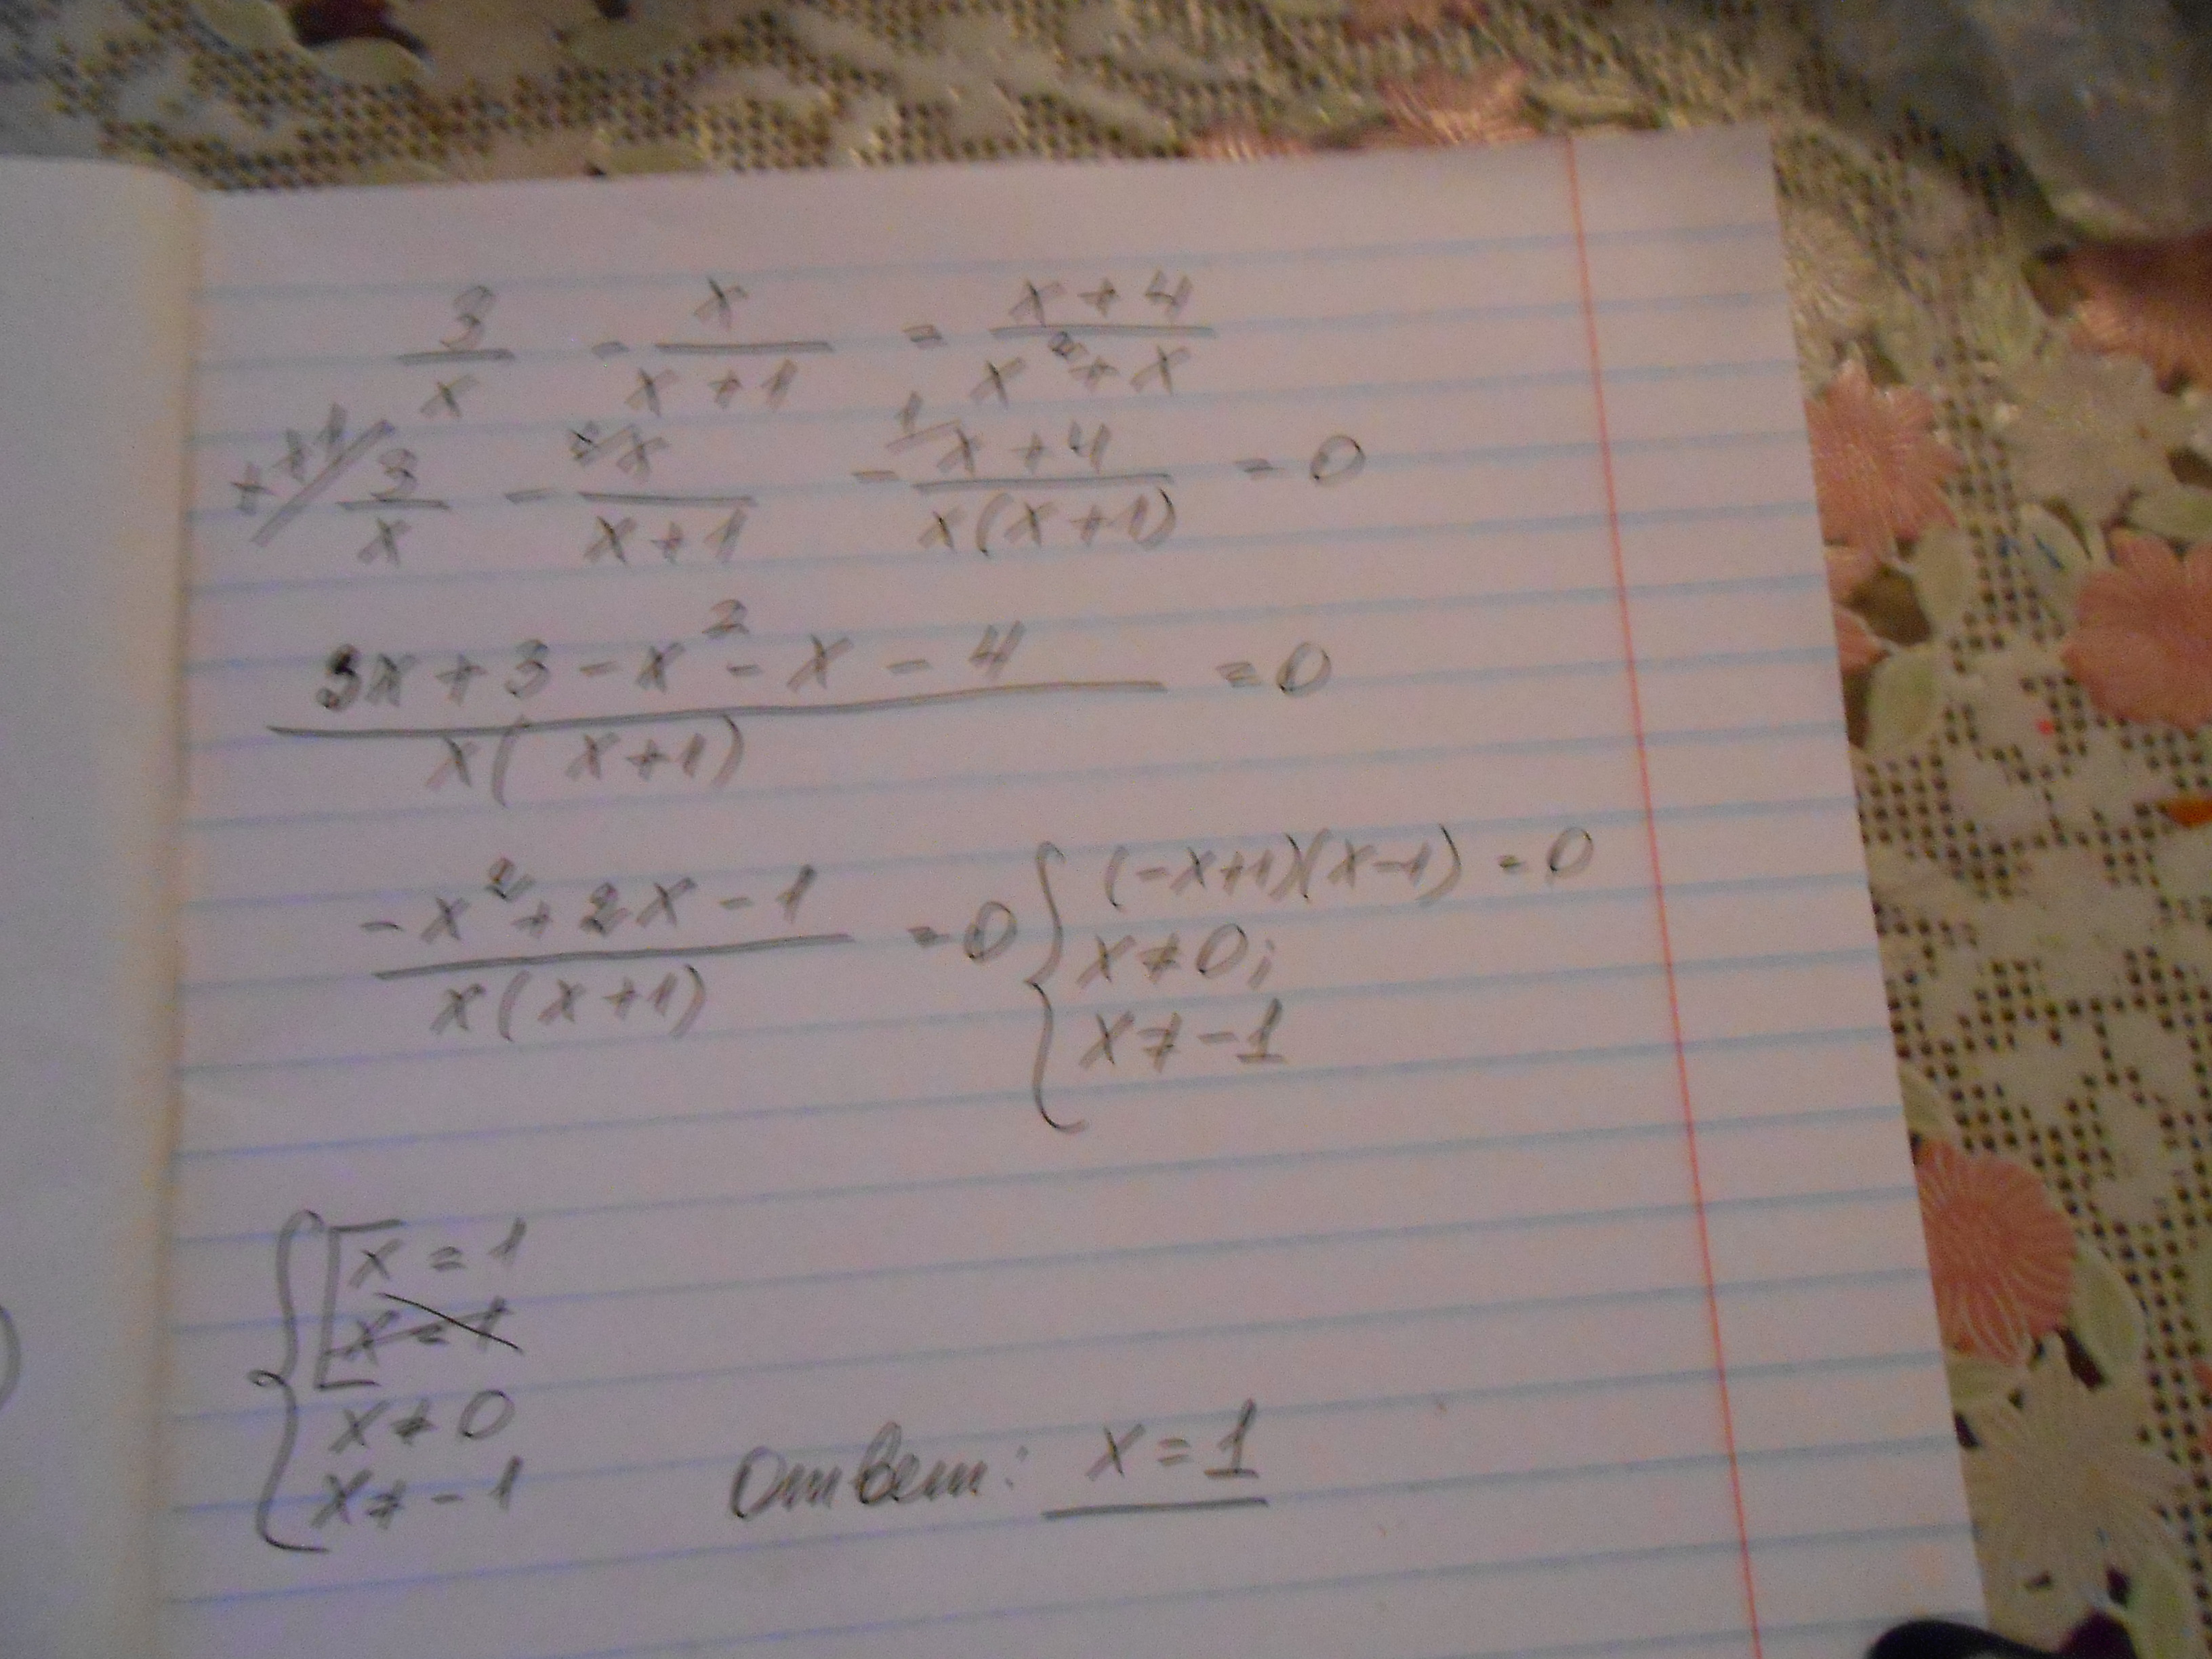 3/x - x/(x+1) = (x+4)/(x²+x)
x+1/ 3/x - x/ x/(x+1) - 1/ (x+4)/(x(x+1)) = 0
(3x+3-x²-x-4)/(x(x+1)) = 0
(-x²+2x-1)/(x(x+1)) = 0 { (-x+1)(x-1) = 0
x≠0;
x≠-1
{ [ x = 1
x = 1
x≠0
x≠-1
Ответ: x = 1